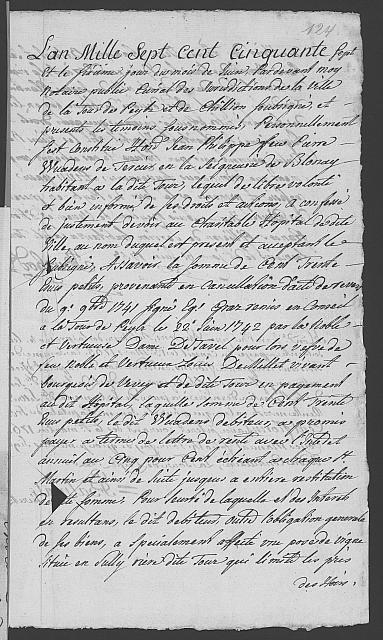 124
L'an Mille Sept Cent Cinquante Sept
Et le sixième jour du mois de Juin, Pardevant moy
Notaire public Curial des Jurisdictions de la Ville
de la Tour de Peylz et de Chillion soubsigné, et
presents les temoins sousnommés, Personnellement
s'est Constitué Hond. Jean Philippe feu Pierre
Wuadens de Tercier, en la Seigneurie de Blonay
habitant a la dite Tour, lequel de sa libre volonté
et bien informé de ses droits et actions, a confessé
de justement devoir au Charitable Hopital de dite
Ville, au nom duquel est present et acceptant le
Assavoir la somme de Cent Trente
petits, provenants en Cancellation d'acte de
du 9e 9bre 1741 signé Eg. Graz remis en Conseil
a la Tour de Peylz le 22e Juin 1742 par la Noble
et Vertueuse Dame De Tavel pour lors vefve de
feu Noble et Vertueux Louis De Millet vivant
Bourgeois de Vevey et de dite Tour en payement
audit Hopital, laquelle somme de Cent Trente
petits, le dit Wuadens debiteur a promis
payer a terme de lettre de rente avec l'Interet
annuel au Cinq pour Cent echeant a chaque St
Martin et ainsi de suite jusques a entiere restitution
de dite somme, Pour seurté de laquelle et des Interets
en resultans, le dit debiteur, outre l'obligation generale
de ses biens, a specialement affecté une pose de vigne
située en Sully riere dite Tour qui limite les prés
des Hoirs